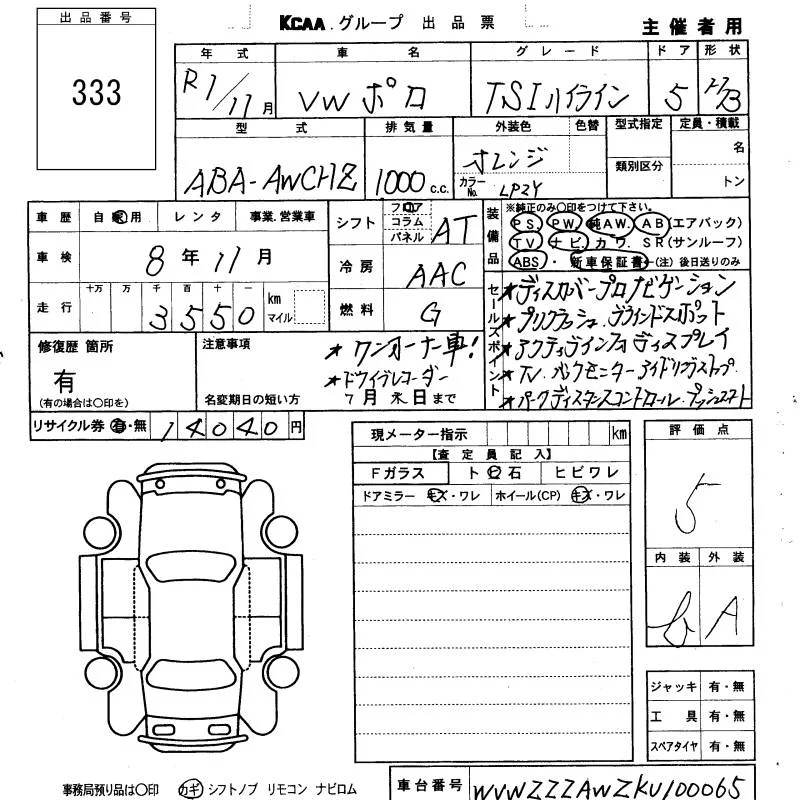 出品番号
333
KCAA.グループ 出品票
主催者用
年式 車名 グレード ドア 形状
R1/11月 VW ポロ TSIハイライン 5 H/B
型式 排気量 外装色 色替 型式指定 定員・積載
ABA-AWCHZ 1000 c.c. オレンジ 名
カラーNo. LP2Y 類別区分 トン
車歴 自家用 レンタ 事業.営業車
シフト フロア コラム パネル AT
装備品 ※純正のみ〇印をつけて下さい。
PS. PW. 純AW. AB(エアバック)
TV ナビ. カワ. SR(サンルーフ)
ABS・新車保証書←(注)後日送りのみ
車検 8年11月
冷房 AAC
走行 十万 万 千 百 十 一 km マイル
3550
燃料 G
セールスポイント
★ディスカバープロナビゲーション
★プリクラッシュ.ブラインドスポット
★アクティブインフォディスプレイ
★TV.バックモニター アイドリングストップ.
★パークディスタンスコントロール.プッシュスタート
修復歴 箇所
有
(有の場合は〇印を)
注意事項
★ワンオーナー車!
★ドライブレコーダー
名変期日の短い方 7月末日まで
リサイクル券 有・無 14040円
現メーター指示 km
【査定員記入】
Fガラス ト ビ 石 ヒビワレ
ドアミラー キズ・ワレ ホイール(CP) キズ・ワレ
評価点
5
内装 外装
b A
ジャッキ 有・無
工具 有・無
スペアタイヤ 有・無
事務局預り品は〇印 カギ シフトノブ リモコン ナビロム
車台番号 WVWZZZAWZKU100065